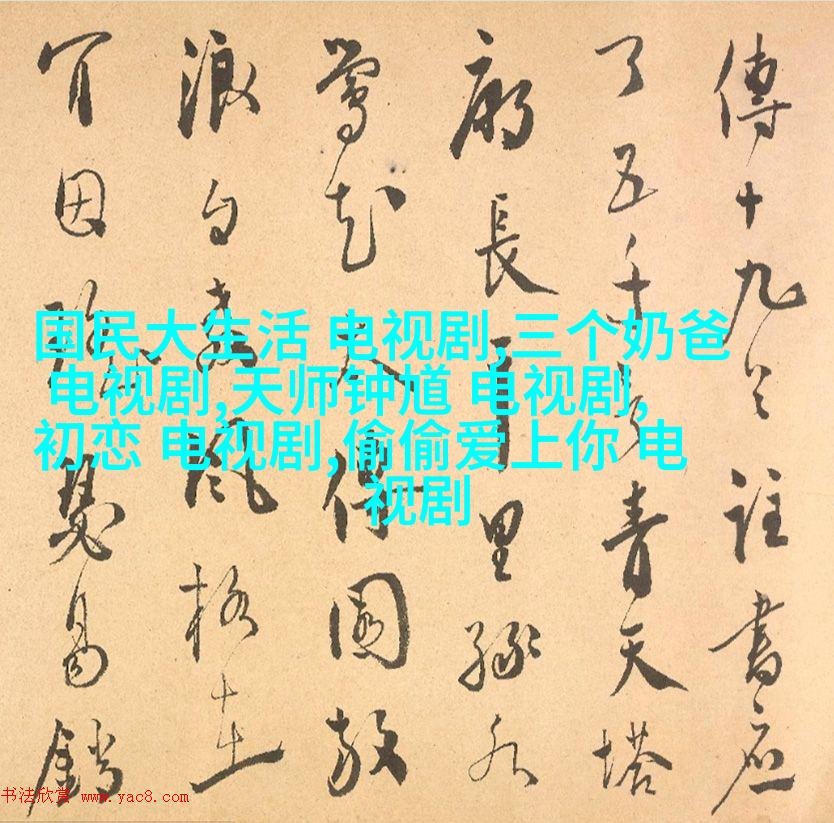 国民大生活 电视剧,三个奶爸
电视剧,天师钟馗 电视剧,
初恋 电视剧,偷偷爱上你 电
视剧
傳十九 註書應
了五千 青天塔
長 里 水
花 得園
浪白 風格在
因 易銷
书法欣赏 www.yac8.com